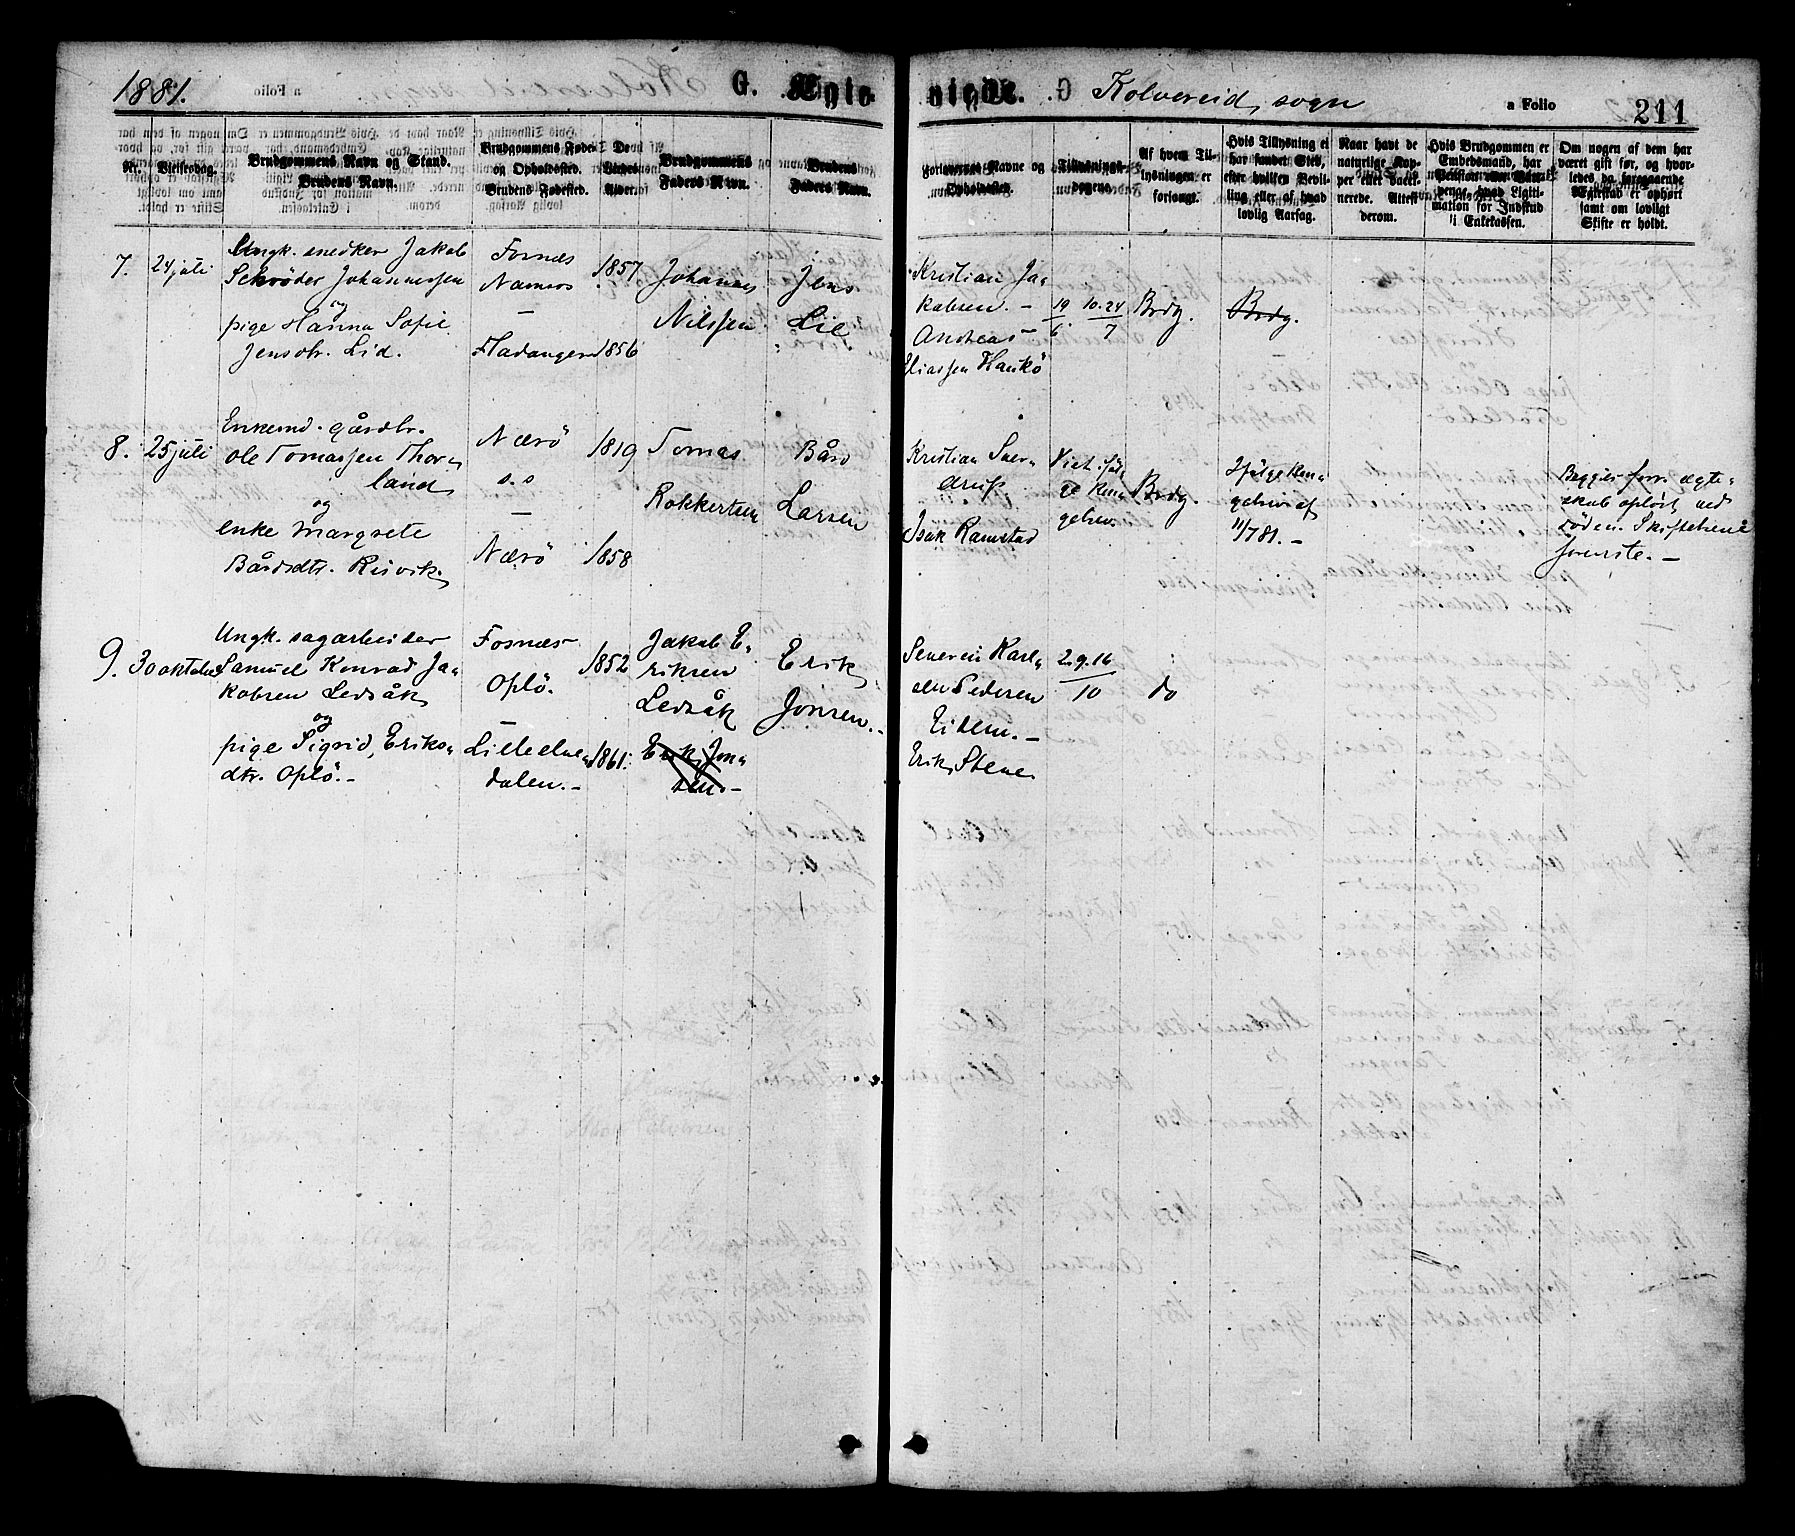 1881.
a Folio
G. Ægte
viede.
Kolvereid sogn
a Folio
211
Nr.
Vielsesdag.
Brudgommens Navn og Stand.
Brudens Navn.
Brudgommens Føde-
og Opholdssted.
Brudens Fødested.
De
Viedes
Alder.
Brudgommens
Faders Navn.
Brudens
Faders Navn.
Forlovernes Navne og
Opholdssted.
Tillysnings-
dagene.
Af hvem Til-
lysningen er
forlangt.
Hvis Tillysning ei
har fundet Sted,
efter hvilken Bevil-
ling eller af hvad
lovlig Aarsag.
Naar havt de
naturlige Kop-
per eller vacci-
nerede. Attest
derom.
Hvis Brudgommen er
Embedsmand, har
Pension
mation for Indskud
i Enkekassen.
Om nogen af dem har
været gift før, og hvor-
ledes da foregaaende
Egteskab er ophørt
samt om lovligt
Skifte er holdt.
7.
24 juli
Ungk. snedker Jakob
Schrøder Johannessen
og
pige Hanna Sofie
Jensdtr. Lid.
Fosnæs
Namsos
–
Fladanger
1857
1856
Johannes
Nilssen
Jens
Lie
Kristian Ja-
kobsen. –
Andreas
Eliassen Haukø
19 10. 24
6 7
Brdg.
–
Brdg.
8.
25 juli
Enkemd. gårdbr.
Ole Tomassen Thor-
land
og
enke Margrete
Bårdsdtr. Risvik
Nærö
s. s
–
Nærö
1819
1858
Tomas
Rokkertsen
Bård
Larsen
Kristian Sver-
drup
Isak Ramstad
Viet ifølge
kon-
gebrev.
Brdg.
Ifølge kon-
gebrev af
11/7 81. –
Begges forr. ægte-
skab opløst ved
døden. Skiftebrevé
foreviste. –
9.
30 oktober
Ungk. sagarbeider
Samuel Konrad Ja-
kobsen Ledsåk
og
pige Sigrid Eriks-
dtr. Oplö. –
Fosnæs
Oplö.
–
Lilleelve-
dalen. –
1852
1861.
Jakob E-
riksen
Ledsåk
Erik Jon-
sen. –
Erik
Jonsen. –
Severin Karl-
elu Pedersen
Eidem. –
Erik Stene
2. 9. 16
10
do